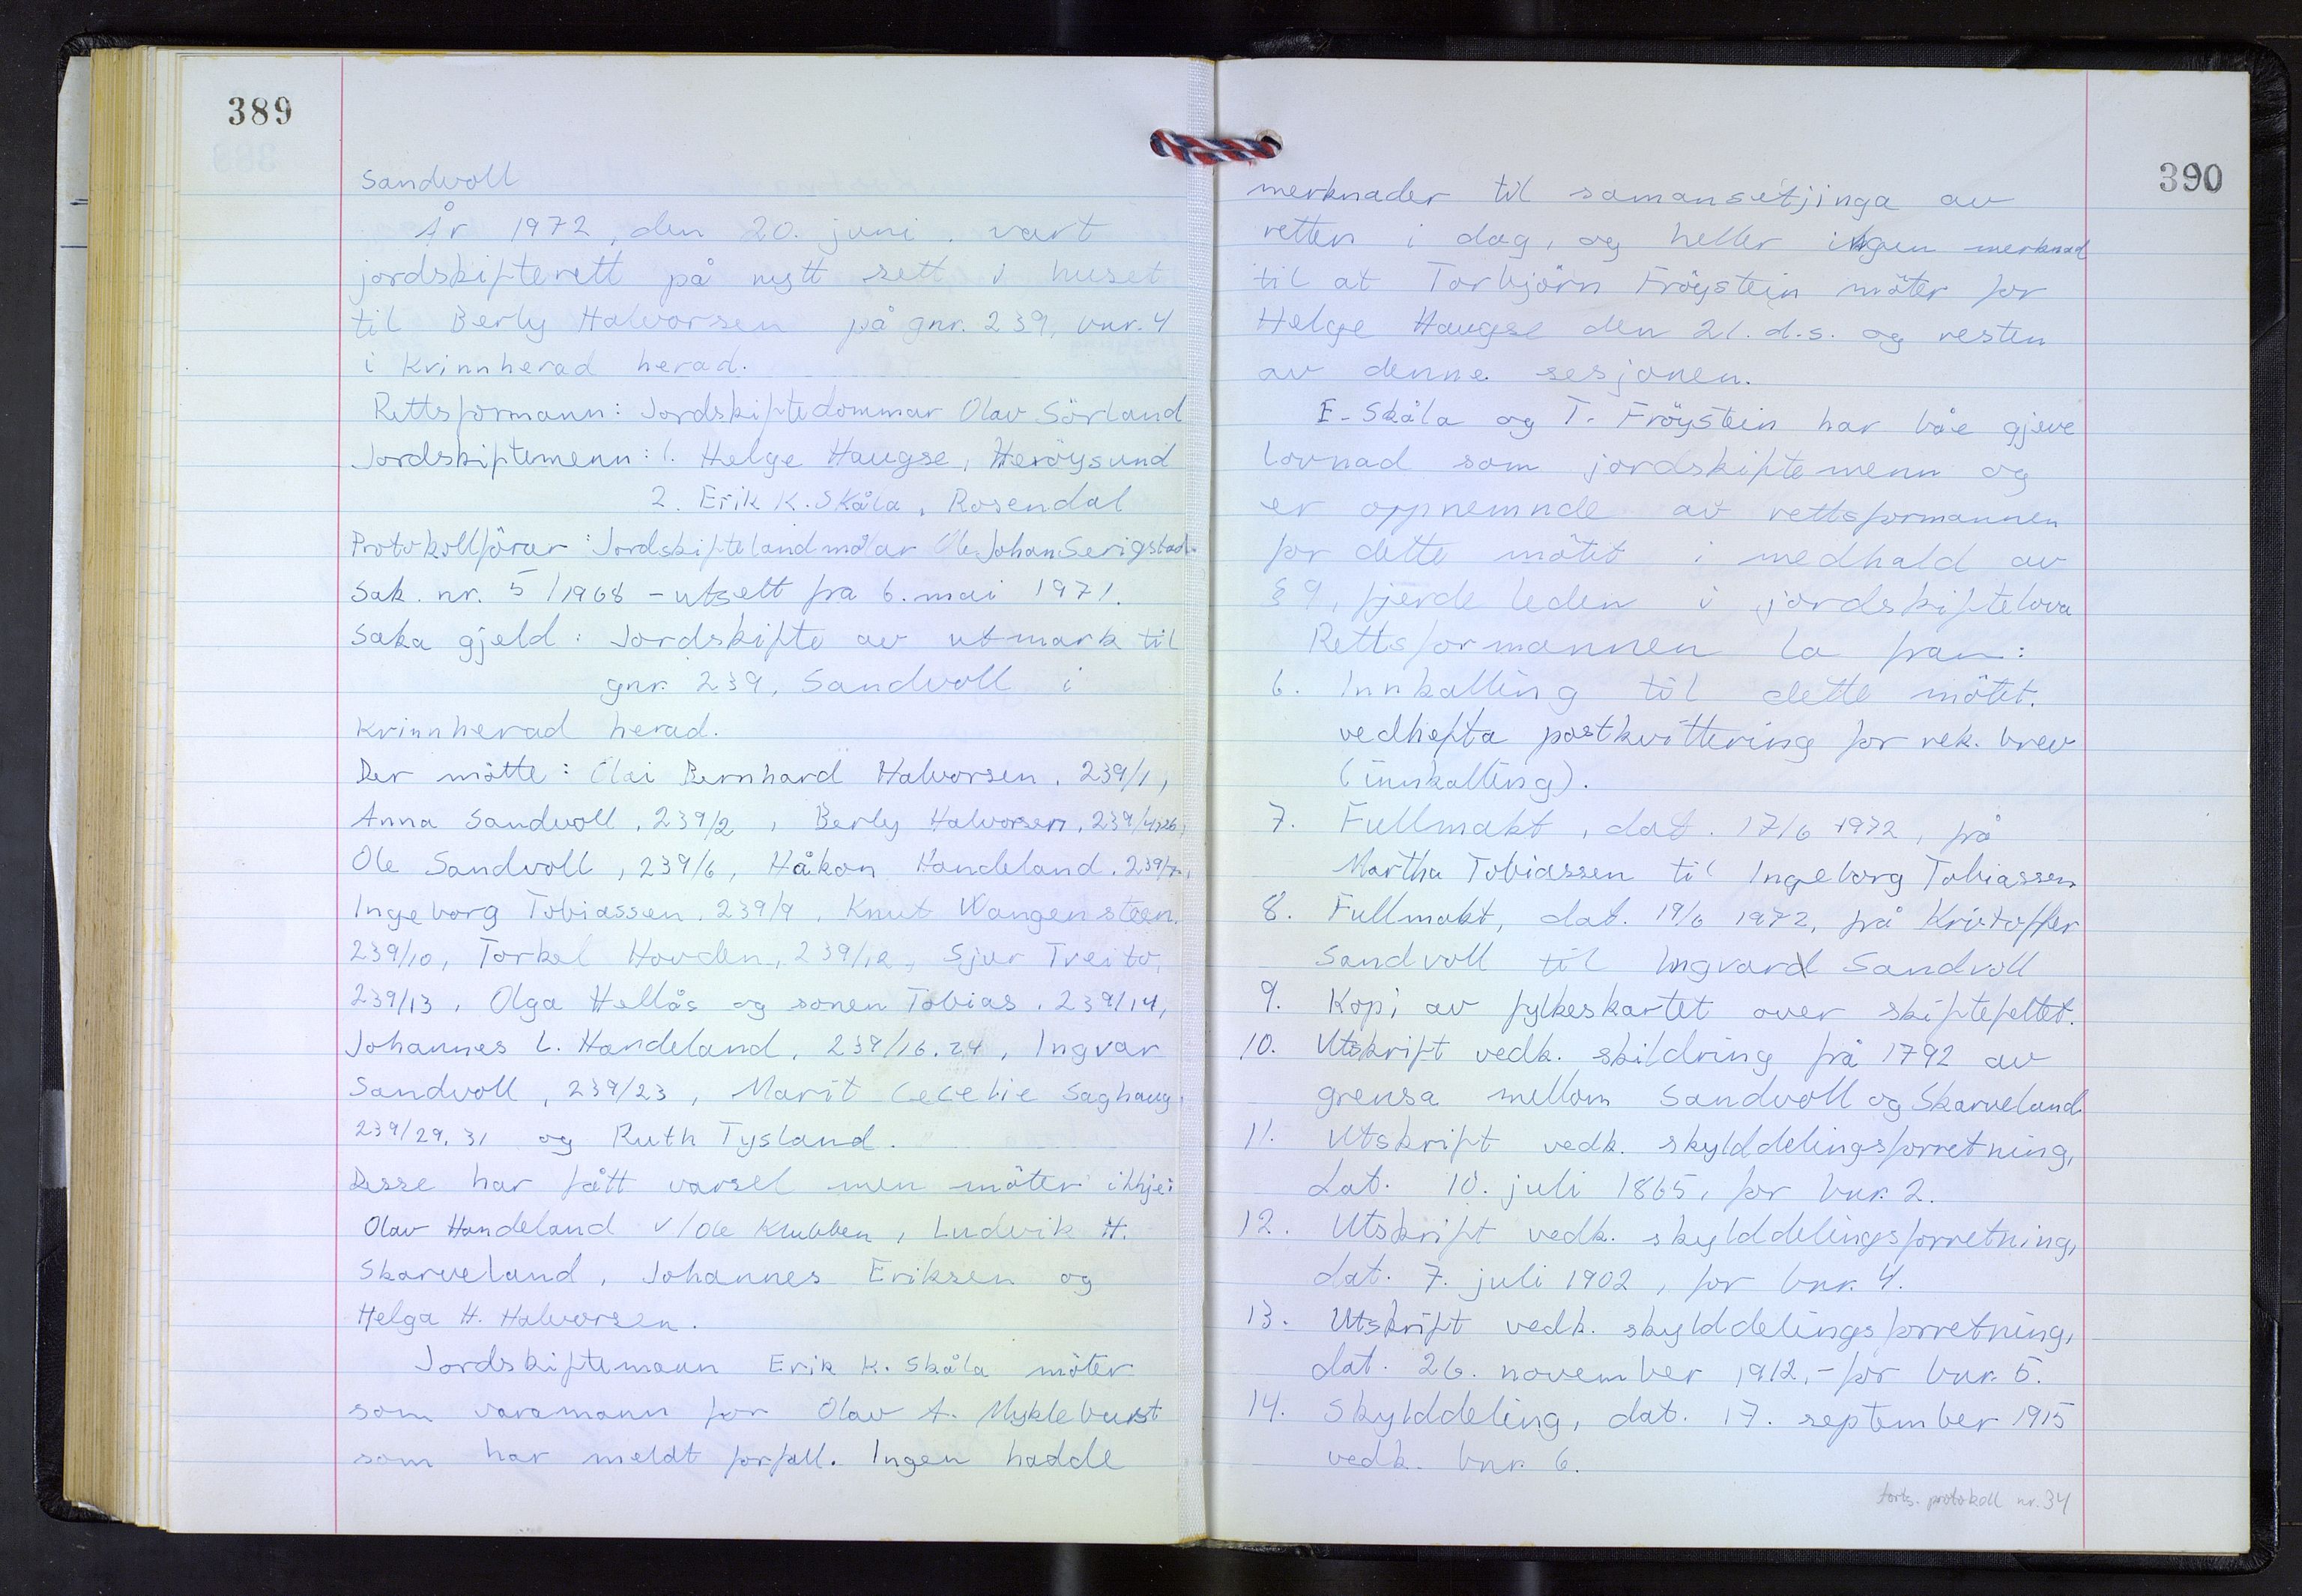 389
Sandvoll
År 1972, den 20. juni. vart
jordskifterett på nytt sett i huset
til Berly Halvorsen på gnr. 239, bnr. 4
i Kvinnherad herad.
Rettsformann: Jordskiftedommar Olav Sörland
Jordskiftemenn: 1. Helge Haugse, Heröysund
2. Erik K. Skåla, Rosendal
Protokollförar: Jordskiftelandmålar Ole Johan Serigstad.
Sak. nr. 5/1968 - utsett fra 6. mai 1971.
Saka gjeld: Jordskifte av utmark til
gnr. 239, Sandvoll i
Kvinnherad herad.
Der mötte: Olai Bernhard Halvorsen, 239/1,
Anna Sandvoll, 239/2, Berly Halvorsen, 239/4,26,
Ole Sandvoll, 239/6, Håkon Handeland, 239/7,
Ingeborg Tobiassen, 239/9, Knut Wangensteen,
239/10, Torkel Hovden, 239/12, Sjur Tveito,
239/13, Olga Hellås og sonen Tobias, 239/14,
Johannes L. Handeland, 239/16.24, Ingvar
Sandvoll, 239/23, Marit Cecelie Saghaug,
239/29, 31 og Ruth Tysland.
Desse har fått varsel men möter ikkje:
Olav Handeland v/Ole Klubben, Ludvik H.
Skarveland, Johannes Eriksen og
Helga H. Halvorsen.
Jordskiftemann Erik K. Skåla möter
som varamann for Olav A. Myklebust
som har meldt forfall. Ingen hadde
390
merknader til samansetjinga av
retten i dag, og heller ingen merknad
til at Torbjörn Fröystein möter for
Helge Haugse den 21. d.s. og resten
av denne sesjonen.
E. Skåla og T. Fröystein har båe gjeve
lovnad som jordskiftemenn og
er oppnemnde av rettsformannen
for dette mötet i medhald av
§ 9, fjerde leden i jordskiftelova
Rettsformannen la fram:
6. Innkalling til dette mötet.
vedhefta postkvittering for rek. brev
(innkalling).
7. Fullmakt, dat. 17/6 1972, frå
Martha Tobiassen til Ingeborg Tobiassen
8. Fullmakt, dat. 19/6 1972, frå Kristoffer
Sandvoll til Ingvard Sandvoll
9. Kopi av fylkeskartet over skiftefeltet.
10. Utskrift vedk. skildring frå 1792 av
grensa mellom Sandvoll og Skarveland
11. Utskrift vedk. skylddelingsforretning,
dat. 10. juli 1865, for bnr. 2.
12. Utskrift vedk. skylddelingsforretning,
dat. 7. juli 1902, for bnr. 4.
13. Utskrift vedk. skylddelingsforretning,
dat. 26. november 1912, - for bnr. 5.
14. Skylddeling, dat. 17. september 1915
vedk. bnr. 6.
forts. protokoll nr. 34